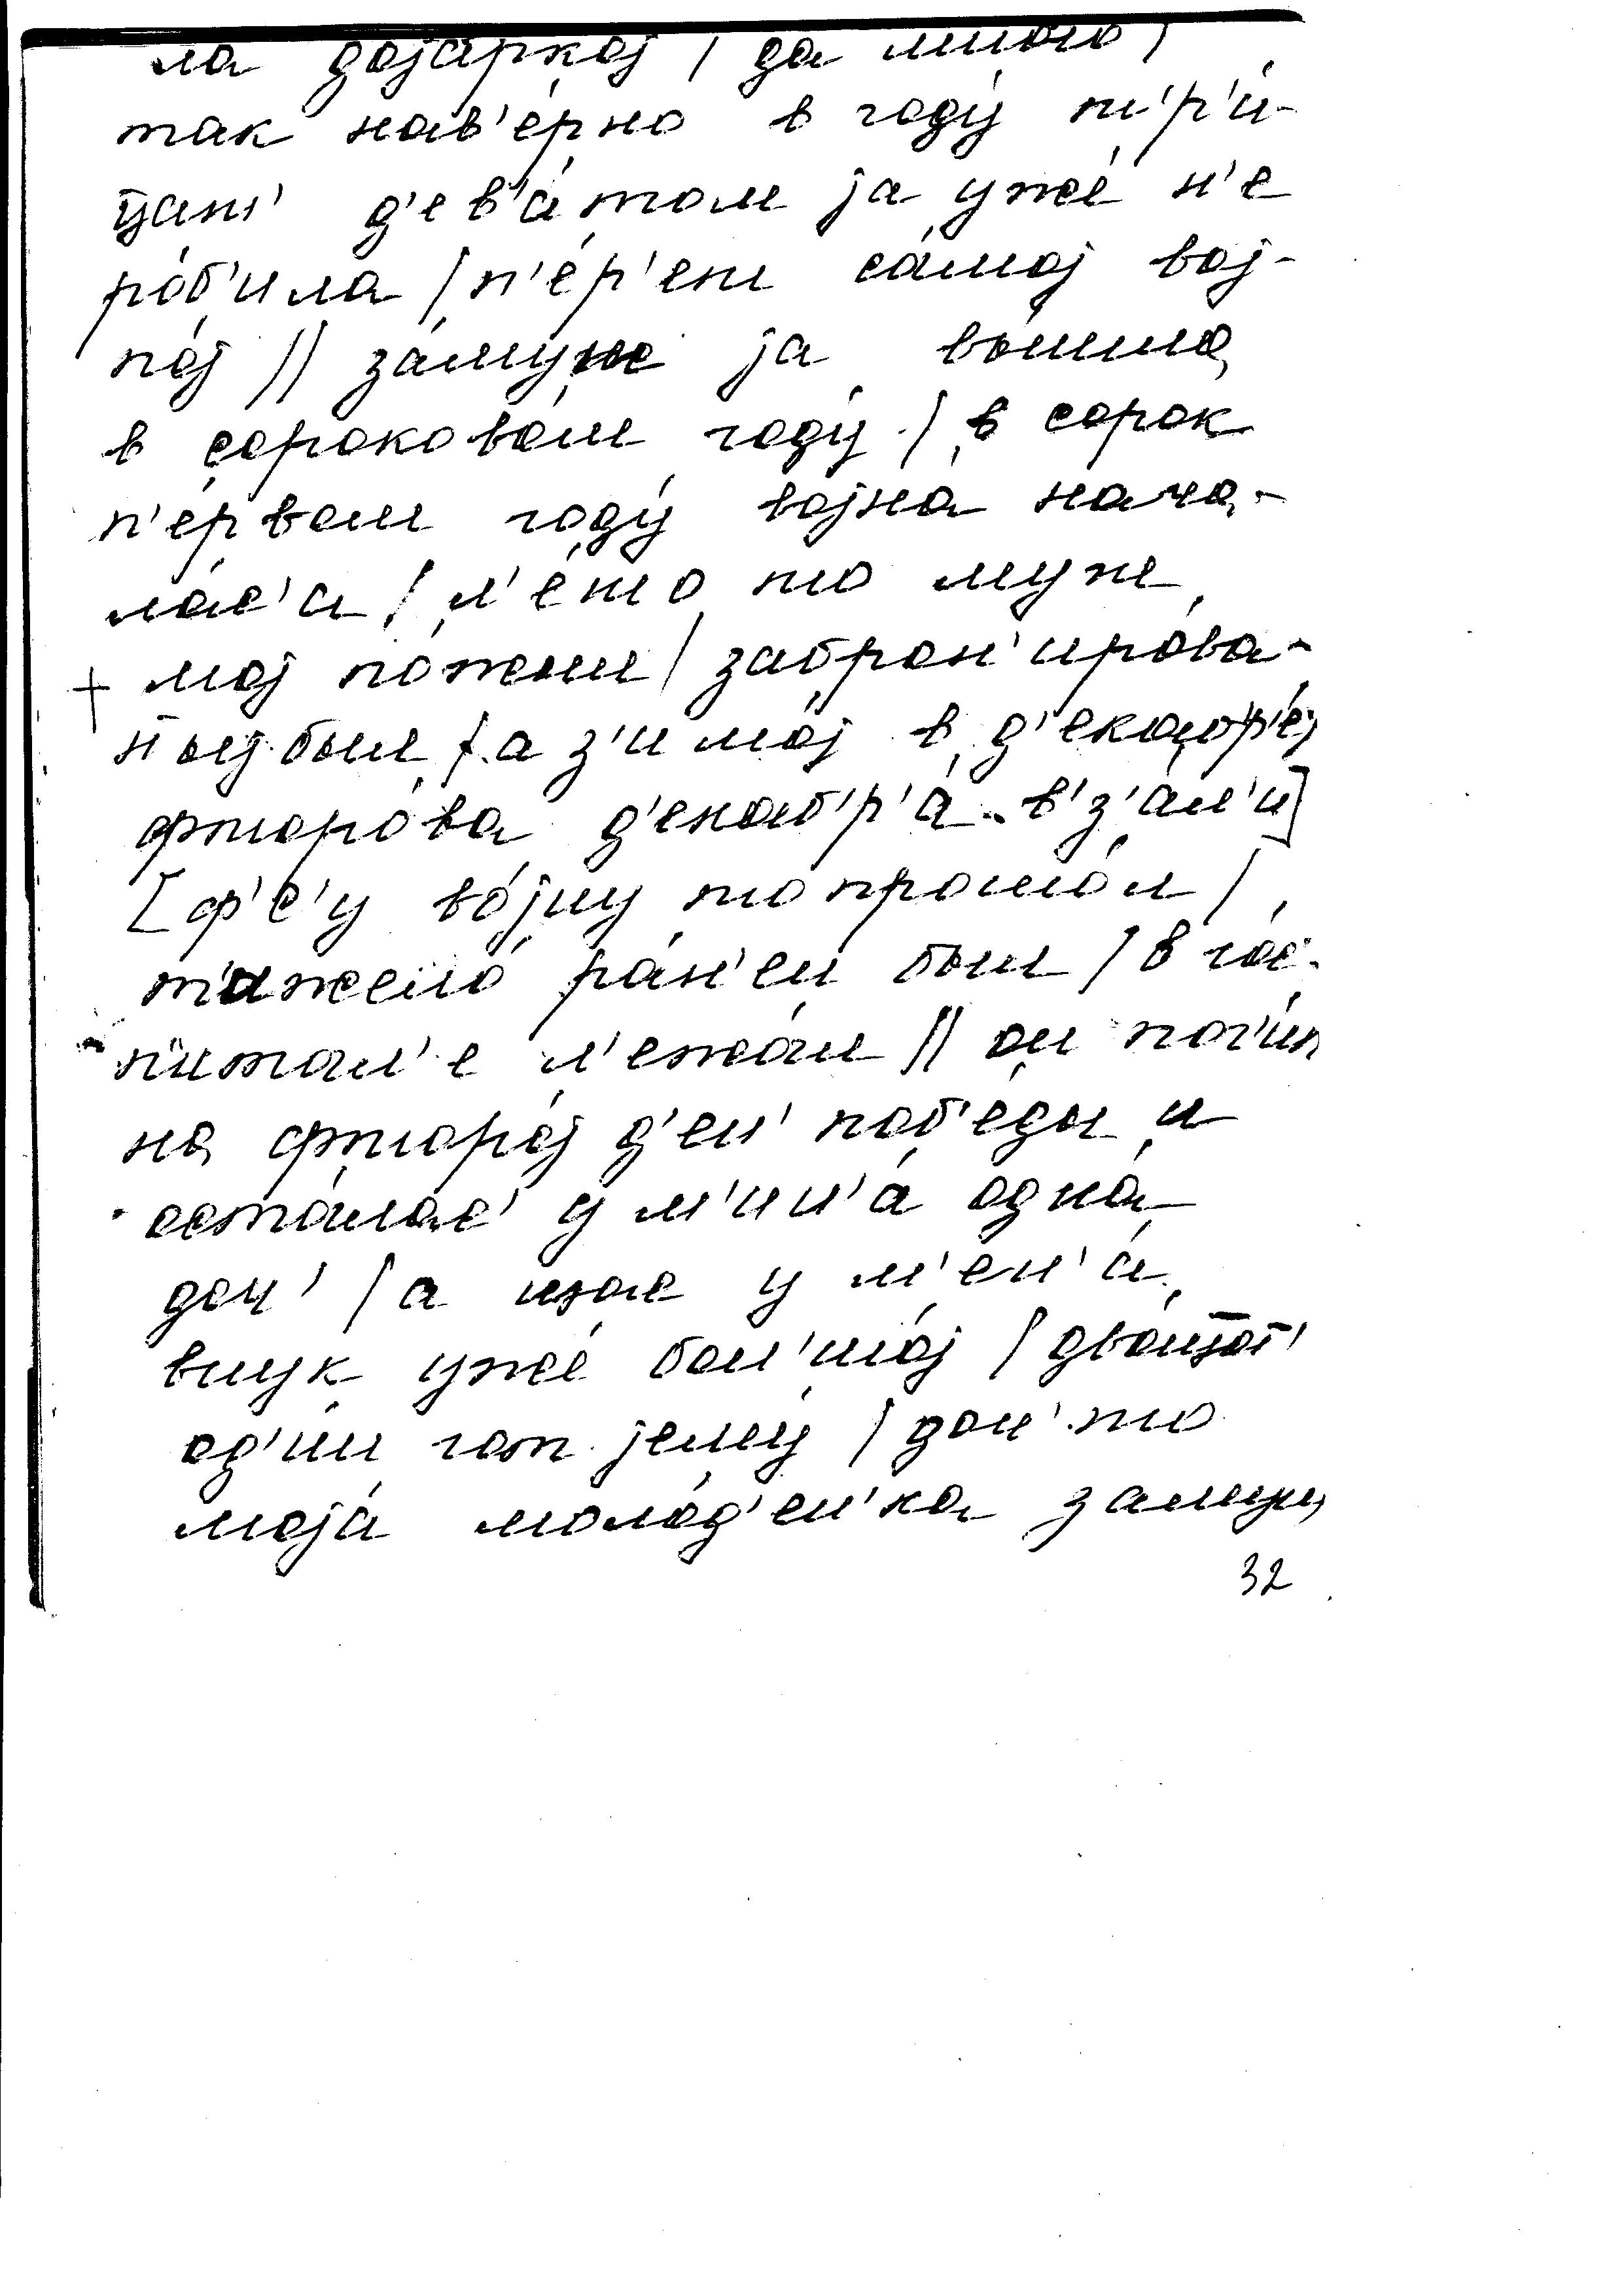 ла доја́ркој / да много /
так нав'е́рно в году́ т'р'и́-
цат' д'ев'а́том ја уже́ н'е
ро́б'ила / п'е́р'ет са́мој вој-
но́j // за́муж ја вышла
в сороково́м году́ / в сорок
п'е́рвом году́ војна́ нача-
ла́с'а / л'е́то то муж
мој
заброн'иро́ва-
ныј был / а з'имо́ј в д'екабр'е́
фторо́ва д'екаб'р'а́ в'з'а́л'и]
[ф'с'у во́јну то прошо́л /
т'ажело́ ра́н'ен был / в гос-
питал'е л'ежа́л // он пог'и́п
на фторо́ј д'ен' поб'еды и
оста́лас' у м'ин'а́ одна́
доч' / а уже у м'ен'а́
внук уже́ бол'шо́ј / два́цат'
од'и́н гот јему́ / доч' то
моја́ моло́д'ен'ка замуш
32